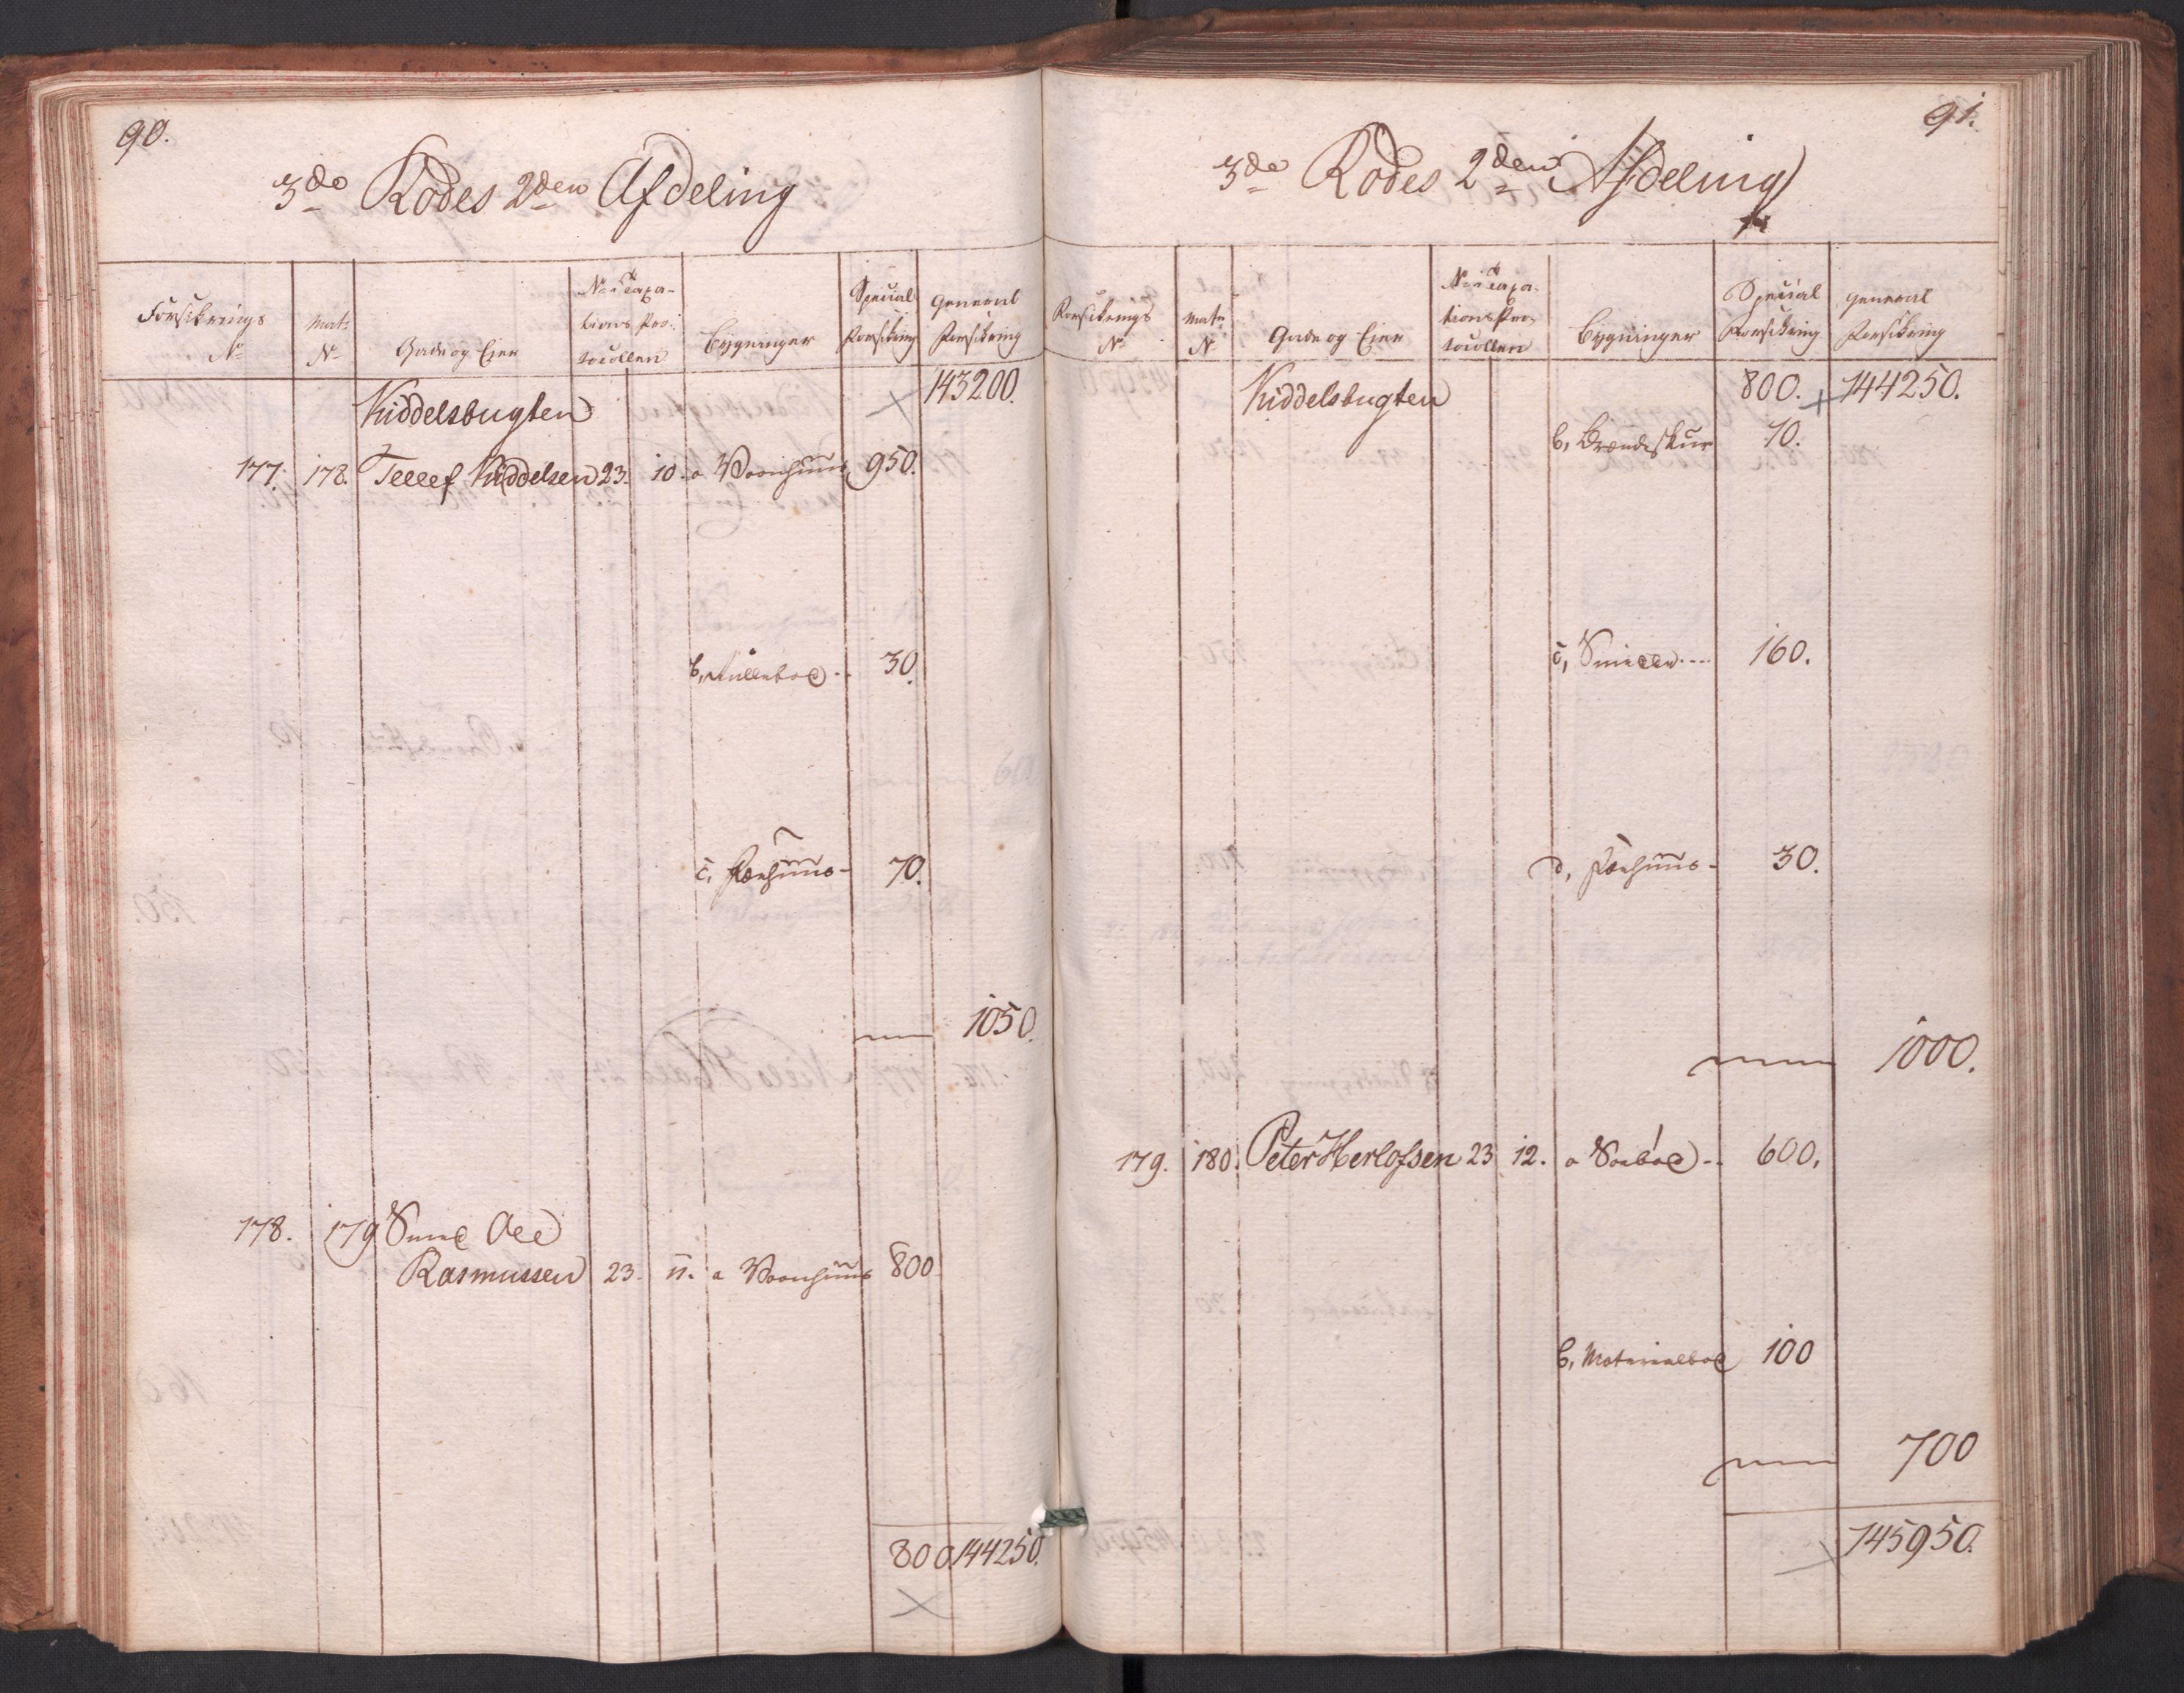 90.
3de Rodes 2den Afdeling
Forsikrings No Mat: No Gade og Eier No i Taxationsprotocollen Bygninger Special Forsikring General Forsikring
Kiddelsbugten 143200.
177. 178. Tellef Kiddelsen 23. 10. a Vaanhuus 950.
b, 30.
c, Faehuus 70.
1050.
178. 179 Smed Ole
Rasmussen 23. 11. a Vaanhuus 800
800 144250.
91.
3de Rodes 2den Afdeling
Forsikrings No Mat: No Gade og Eier No i Taxationsprotocollen Bygninger Special Forsikring General Forsikring
Kiddelsbugten 800. 144250.
b, Brændeskur 10.
c, Smieen 160.
d, Faehuus 30.
1000.
179. 180. Peter Herlofsen 23 12. a Søebod 600.
b, Materialbod 100
700
145950.